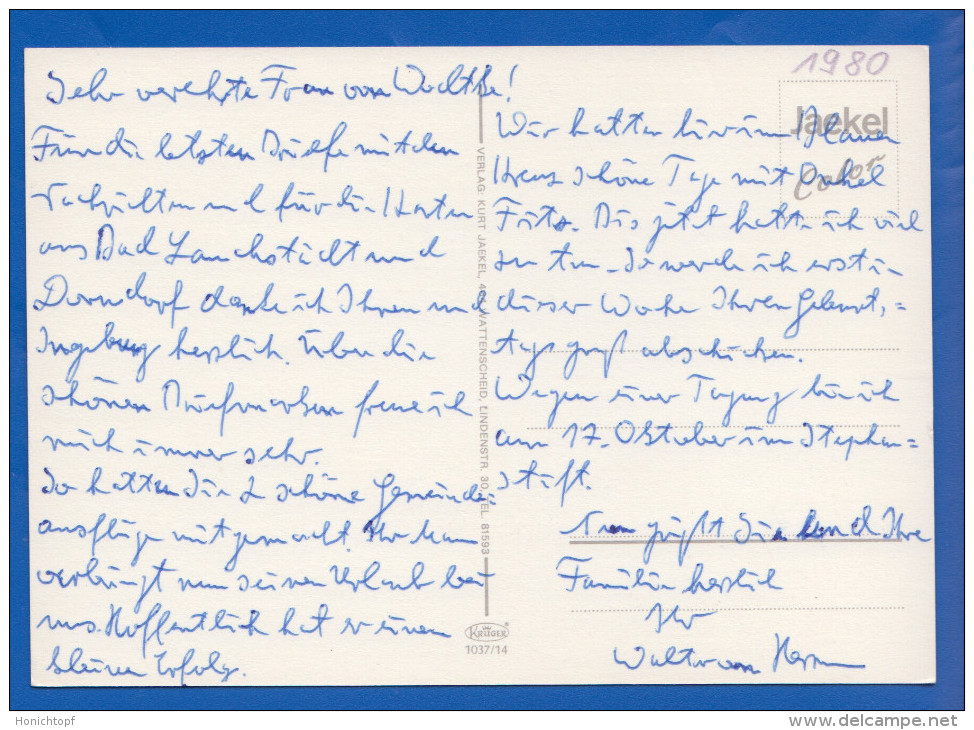 1980
Sehr verehrte Frau von
Für die letzten Briefe mit den
und für die Karten
aus Bad Lauchstädt und
Dorndorf danke ich Ihnen und
Ingeburg herzlich. Über die
schönen Briefmarken freue ich
mich immer sehr.
So hatten Sie 2 schöne Gemeinde-
ausflüge mitgemacht. Ihr
verbringt nun seinen Urlaub bei
uns. Hoffentlich hat er einen
kleinen Erfolg.
Wir hatten hier im Blauen
Kreuz schöne Tage mit Onkel
Fritz. Bis jetzt hatte ich viel
zu tun. So werde ich erst in
dieser Woche Ihren Geburts=
tagsgruß abschicken.
Wegen einer Tagung bin ich
am 17. Oktober im Stephan=
stift.
Nun grüßt Sie und Ihre
Familie herzlich
Ihr
Walter von
Jaekel
Color
VERLAG: KURT JAEKEL, WATTENSCHEID, LINDENSTR. 30, TEL. 81593
KRÜGER
1037/14
Honichtopf
delcampe.net